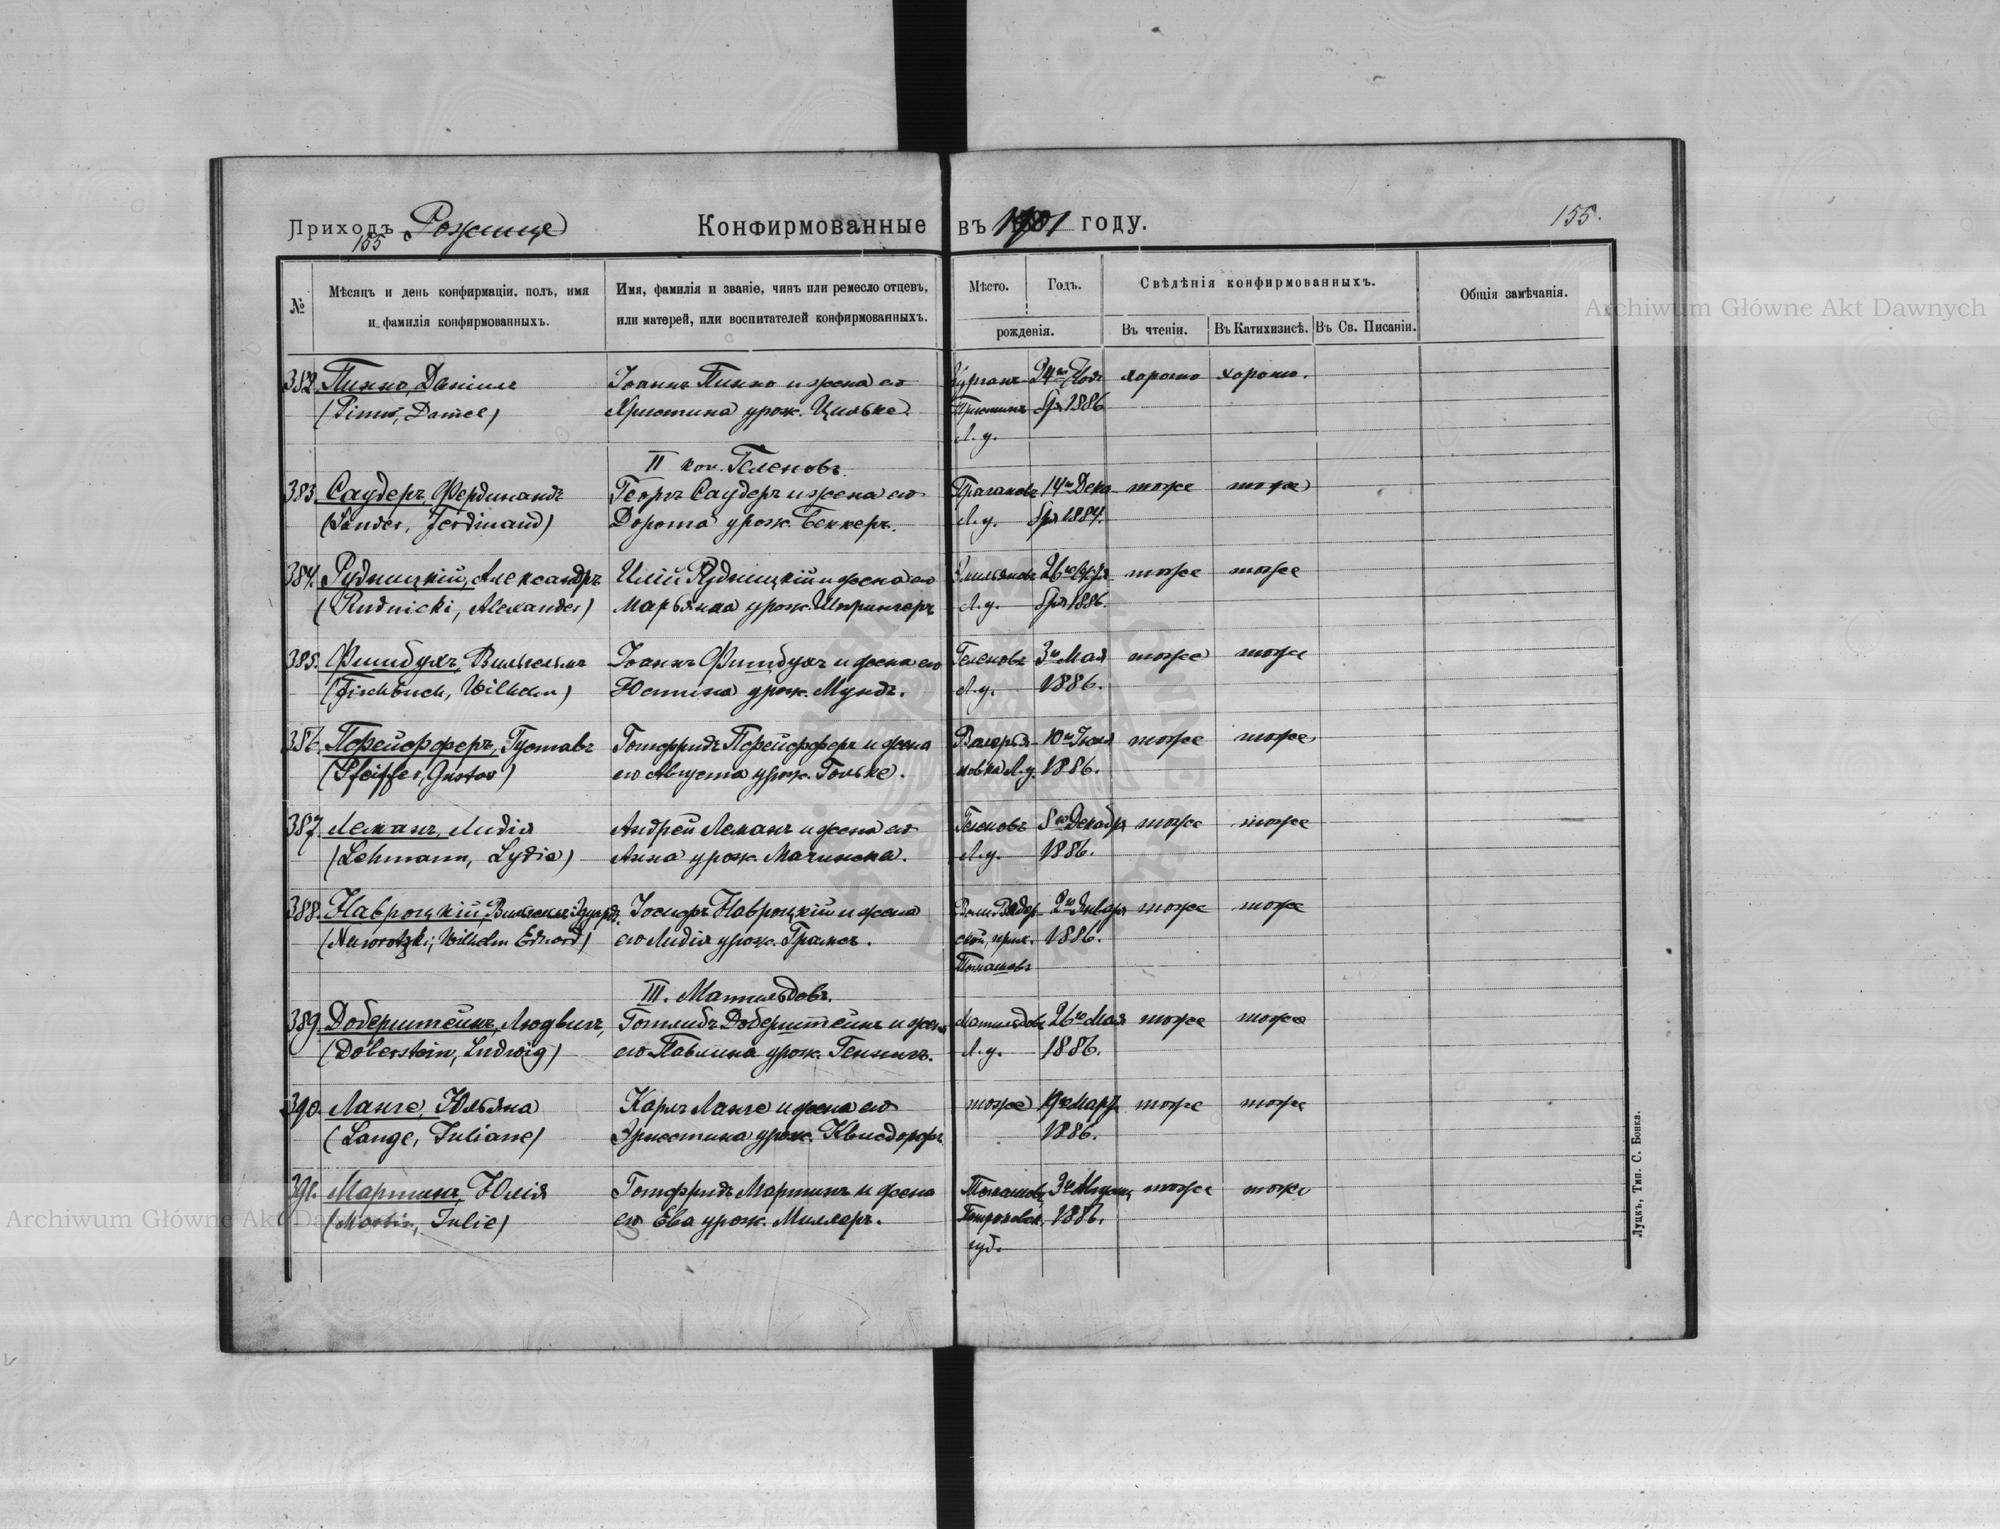 Приходъ Рожище
155
Конфирмованные въ 1901 году.
155.
№
Мѣсяцъ и день конфирмаціи, полъ, имя
и фамилія конфирмованныхъ.
Имя, фамилія и званіе, чинъ или ремесло отцевъ,
или матерей, или воспитателей конфирмованныхъ.
Мѣсто.
Годъ.
рожденія.
Свѣдѣнія конфирмованныхъ.
Въ чтеніи.
Въ Катихизисѣ.
Въ Св. Писаніи.
Общія замѣчанія.
382. Пинно, Даніилъ Іоаннъ Пинно и жена его 24го хорошо хорошо.
(Pinno, Daniel) Христина урож. Цильке. бря 1886
Л. у.
II кол. Геленовъ.
383. Саудеръ, Фердинандъ Георгъ Саудеръ и жена его 14го Дека тоже тоже
(Sauder, Ferdinand) Дорота урож. Беккеръ. Л. у. бря 1884.
384. Рудницкій, Александръ Рудницкій и жена его 26го тоже тоже
(Rudnicki, Alexander) Марьянна урож. Шпрингеръ Л. у. бря 1886.
385. Фишбухъ, Вильгельмъ Іоаннъ Фишбухъ и жена его Геленовъ 3го Мая тоже тоже
(Fischbuch, Wilhelm) Юстина урож. Мундъ. Л. у. 1886.
386. Пфейфферъ, Густавъ Готфридъ Пфейфферъ и жена Валерья- 10го тоже тоже
(Pfeiffer, Gustav) его Августа урож. Гольке. новка Л. у. 1886.
387. Леманъ, Лидія Андрей Леманъ и жена его Геленовъ 8го Декабря тоже тоже
(Lehmann, Lydia) Анна урож. Мачинска. Л. у. 1886.
388. Навроцкій, Вильгельмъ Эдуардъ. Іосифъ Навроцкій и жена 2го Января тоже тоже
(Nawrotzki, Wilhelm Eduard) его Лидія урож. 1886.
Томашовъ
III. Матильдовъ.
389. Доберштейнъ, Людвигъ, Готлибъ Доберштейнъ и жена Матильдовъ 26го Мая тоже тоже
(Doberstein, Ludwig) его Павлина урож. Геннигъ. Л. у. 1886.
390. Ланге, Юльяна Карлъ Ланге и жена его тоже 19го Марта тоже тоже
(Lange, Juliane) Эрнестина урож. Квисдорфъ 1886.
391. Мартинъ, Юлія Готфридъ Мартинъ и жена Томашовъ, 3го Августа тоже тоже
(Martin, Julie) его Ева урож. Миллеръ. Петроковск. 1886.
губ.
Луцкъ, Тип. С. Бонка.
Archiwum Główne Akt Dawnych
Archiwum Główne Akt Dawnych